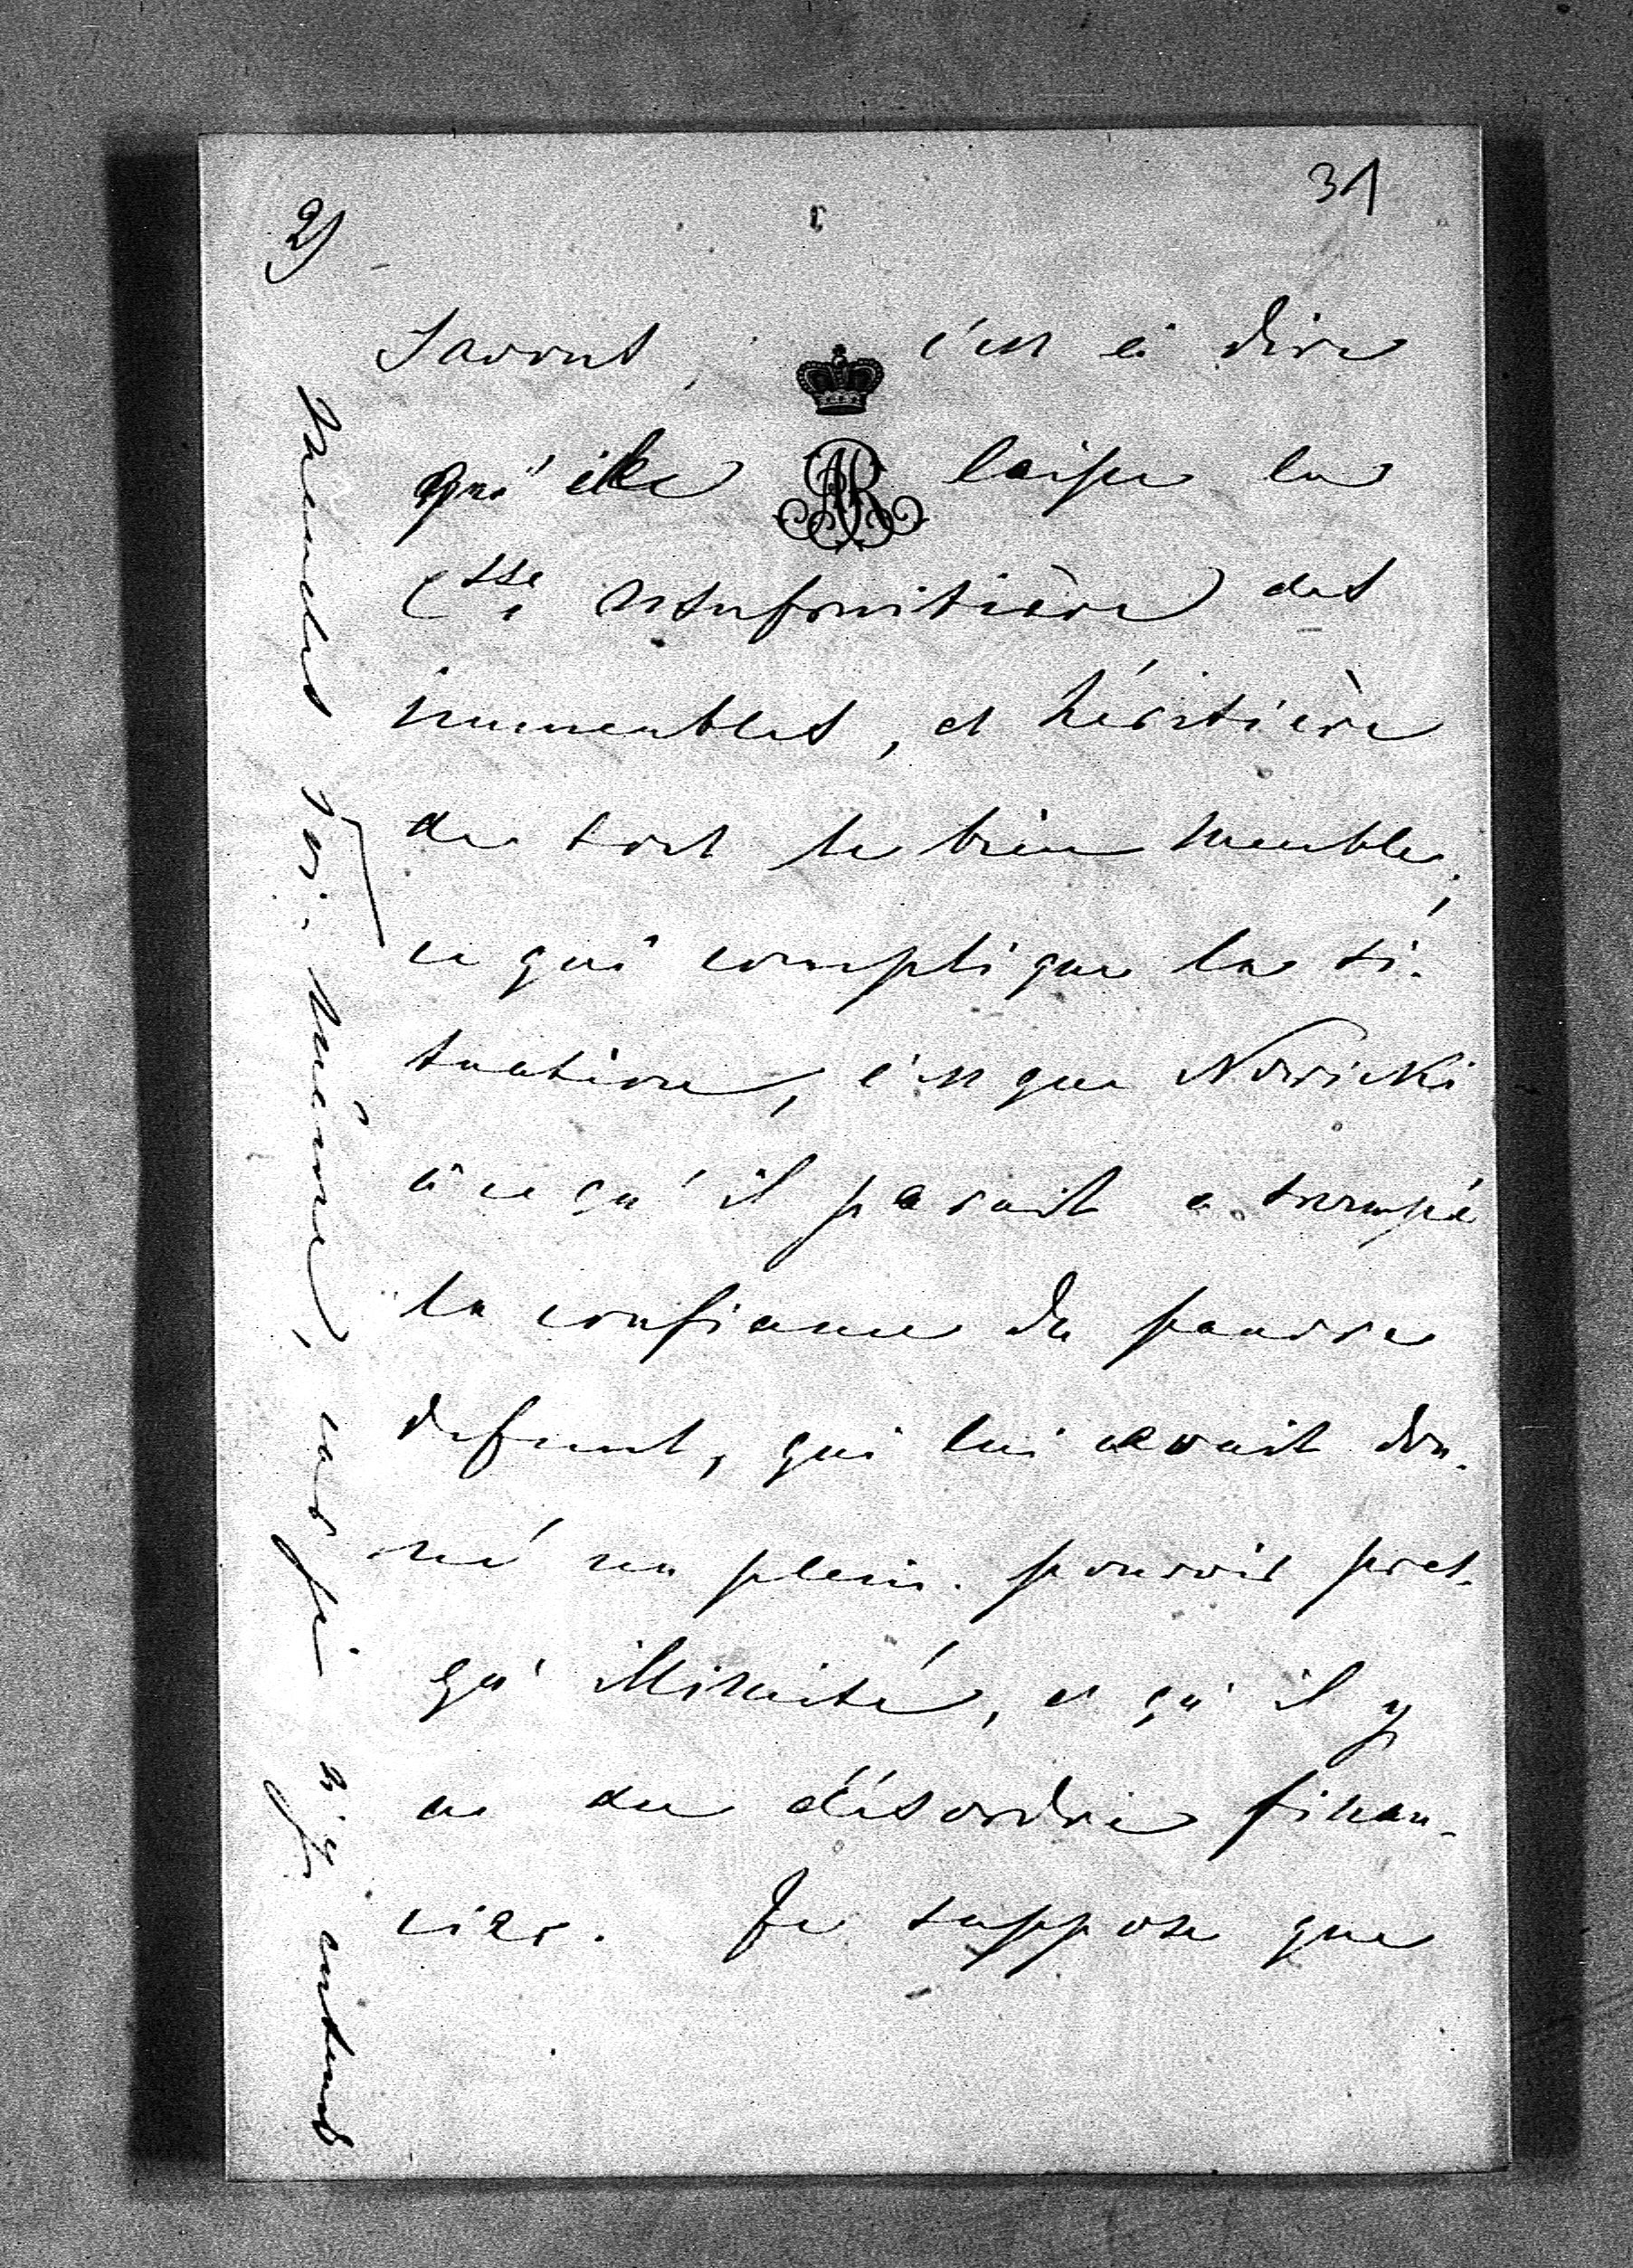 31
2)
savent, c'est à dire
qu'elle laisse la
Csse usufruitière des
immeubles, et héritière
de tout le bien meuble;
ce qui complique la si-
tuation, c'est que Nowicki
à ce qu'il parait a trompé
la confiance du pauvre
defunt, qui lui avait don-
né un plein-pouvoir pres-
qu' illimité, et qu'il y
a du désordre finan-
cier. Je suppose que